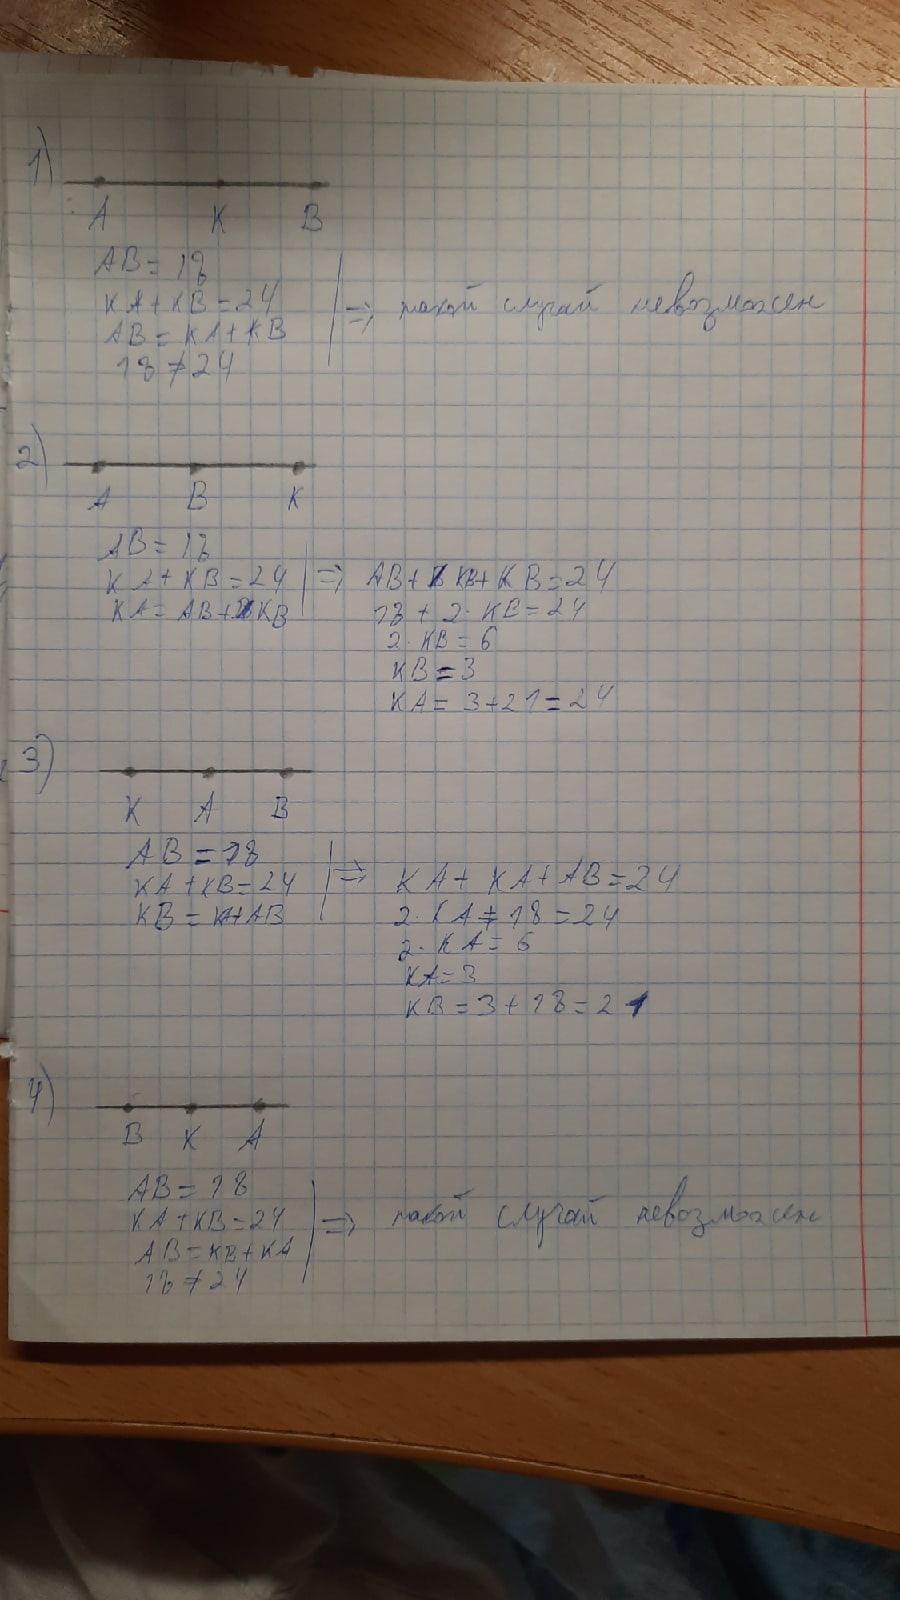 1)
A K B
AB = 18
KA + KB = 24
AB = KA + KB
18 ≠ 24
⇒ такой случай невозможен
2)
A B K
AB = 18
KA + KB = 24
KA = AB + KB
⇒ AB + KB + KB = 24
18 + 2 · KB = 24
2 · KB = 6
KB = 3
KA = 3 + 21 = 24
3)
K A B
AB = 18
KA + KB = 24
KB = KA + AB
⇒ KA + KA + AB = 24
2 · KA + 18 = 24
2 · KA = 6
KA = 3
KB = 3 + 18 = 21
4)
B K A
AB = 18
KA + KB = 24
AB = KB + KA
18 ≠ 24
⇒ такой случай невозможен